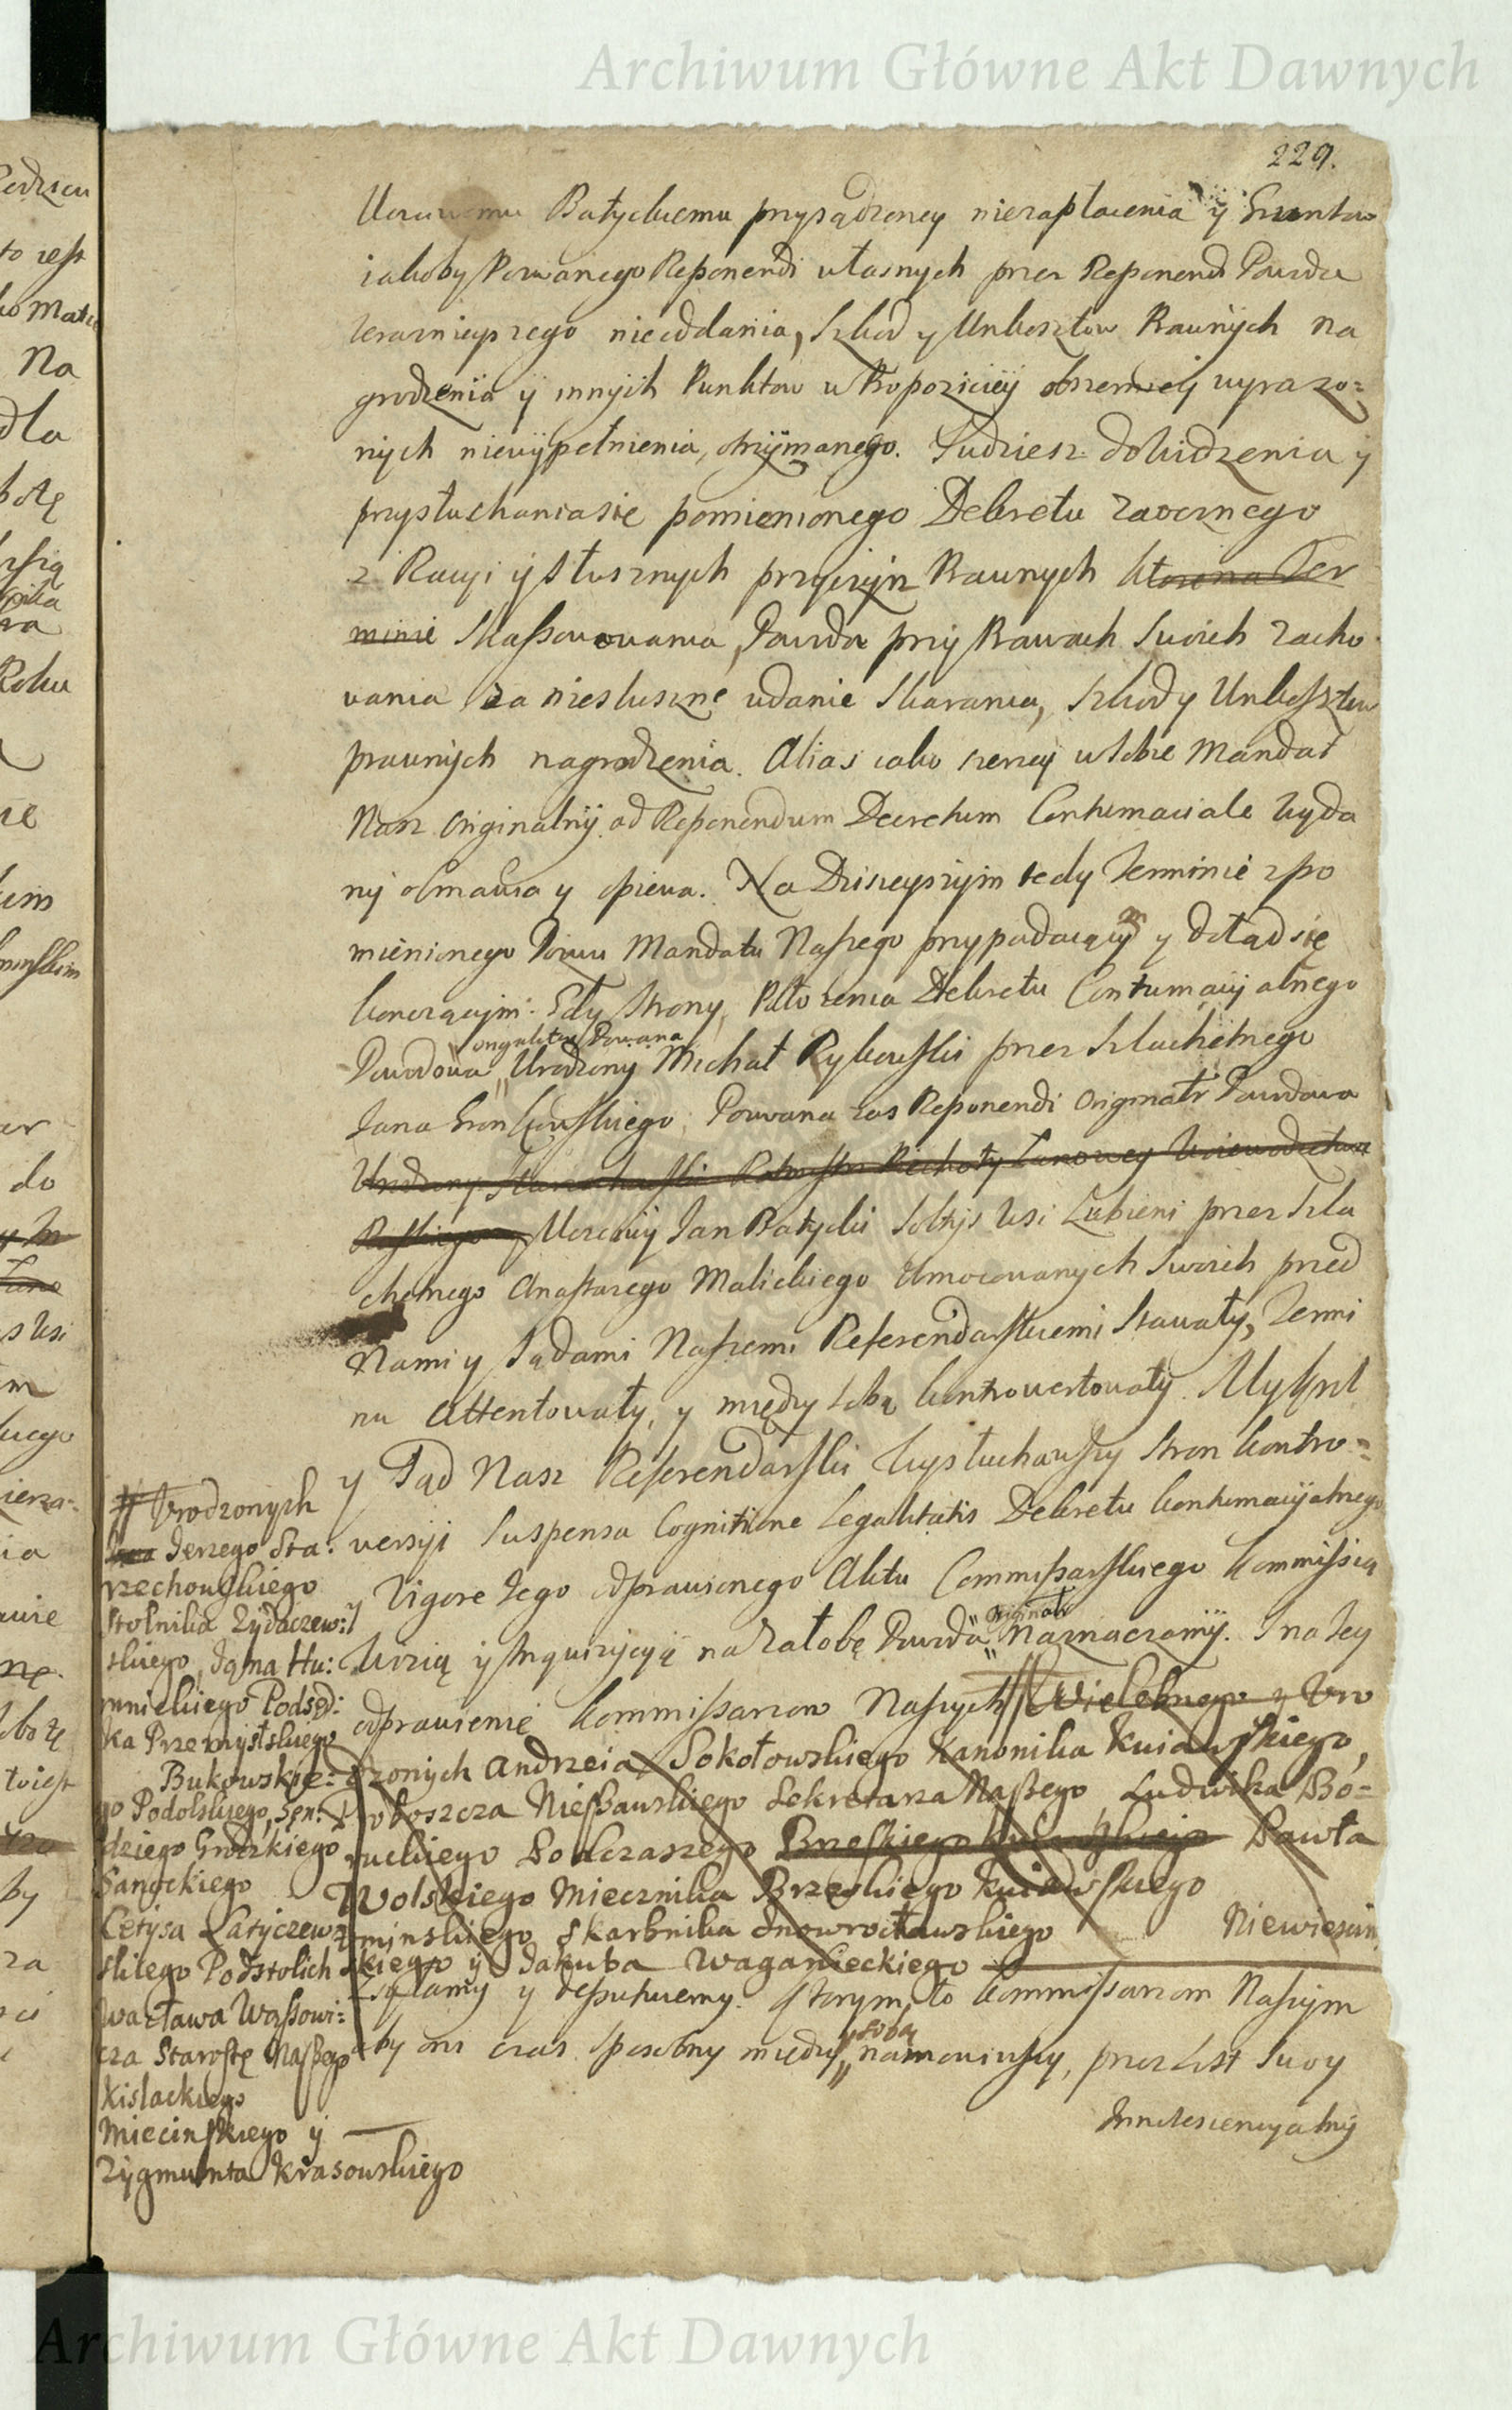 Archiwum Główne Akt Dawnych
229.
Batyckiemu przysądzoney niezapłacenia y Gruntow
iakoby Powanego Reponendi własnych przez Reponendi Powoda
terazniejszego nieoddania, Szkod y Unkosztow Prawnych na
grodzenia y innych Punktow w Propozicyi obszerniey wyrazo=
nych niewypełnienia, otrzymanego. Tudziesz do widzenia y
przysłuchania się pomienionego Dekretu zaocznego
z Racyi y słusznych przyczyn Prawnych ktorego na Ter
minie Skassowowania, Powoda przy Prawach Swoich zacho
wania za niesłuszne udanie Skarania, Szkod y Unkosztow
prawnych nagrodzenia. Alias iako szerzey w Sobie Mandat
Nasz Originalny ad Reponendum Decretum Contumaciale wyda
ny obmawia y opiewa. Na Dzisieyszym tedy Terminie z po
mienionego Pozwu Mandatu Naszego przypadaiącym y dotąd się
konczącym. Gdy Strony, Położenia Dekretu Contumacyalnego
originaliter Powana
Powodowa Urodzony Michał Rykowski przez Szlachetnego
Jana Powana zas Reponendi Originalr Powodowa
Urodzony Rotmistrz Piechoty Łanowey Woiewodztwa
Ruskiego y Uczciwy Jan Batycki Sołtys Wsi Łubieni przez Szla
chetnego Anastazego Malickiego Umocowanych Swoich przed
Nami y Sądami Naszemi Referendarskiemi Stawały, Termi
nu Attentowały, y między Sobą kontrowertowały. My Krol
y Sąd Nasz Referendarski Wysłuchawszy Stron kontro=
wersyi Suspensa Cognitione Legalitatis Dekretu kontumacyalnego
y Vigore Jego odprawionego Aktu Commissarskiego kommissią
Originalr
Wizią y Inquizycyą na Załobę Powoda naznaczamy. I na Jey
odprawienie kommissarzow Naszych # Wielebnego y Uro
dzonych Andrzeia Sokołowskiego Kanonika Kuiawskiego,
Proboszcza Nieszawskiego Sekretarza Naszego, Ludwika Bo=
ruckiego Podczaszego Brzeskiego Kuiawskiego Pawła
Wolskiego Miecznika Brzeskiego Kuiawskiego
minskiego Skarbnika Inowrocławskiego
kiego y Jakuba Waganieckiego
Zsyłamy y deputuiemy. Ktorym to kommissarzom Naszym
sobą
aby oni czas sposobny między namowiwszy, przez List Swoy
Innotescencyalny
# Urodzonych
Jerzego Sta:
rzechowskiego
Stolnika Zydaczew:
skiego, Jana Hu:
mnickiego Podsęd:
ka Przemyslskiego
Bukowskie:
go Podolskiego, Sęn:
dziego Grodzkiego
Sanockiego
Letysa Latyczew
skiego Podstolich
Wacława Wassowi:
cza Starostę Naszego
Kislackiego
Miecinskiego y
Zygmunta Krasowskiego
Archiwum Główne Akt Dawnych